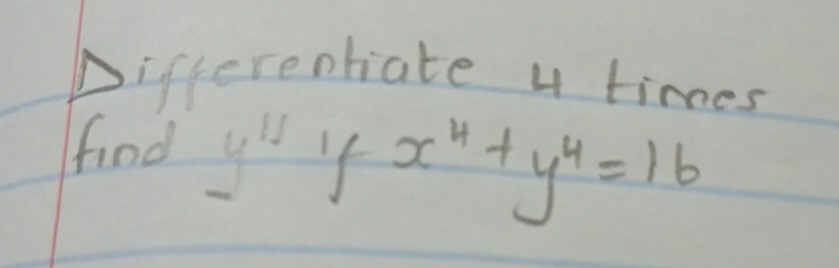 Differentiate 4 times
find y'' if x⁴ + y⁴ = 16